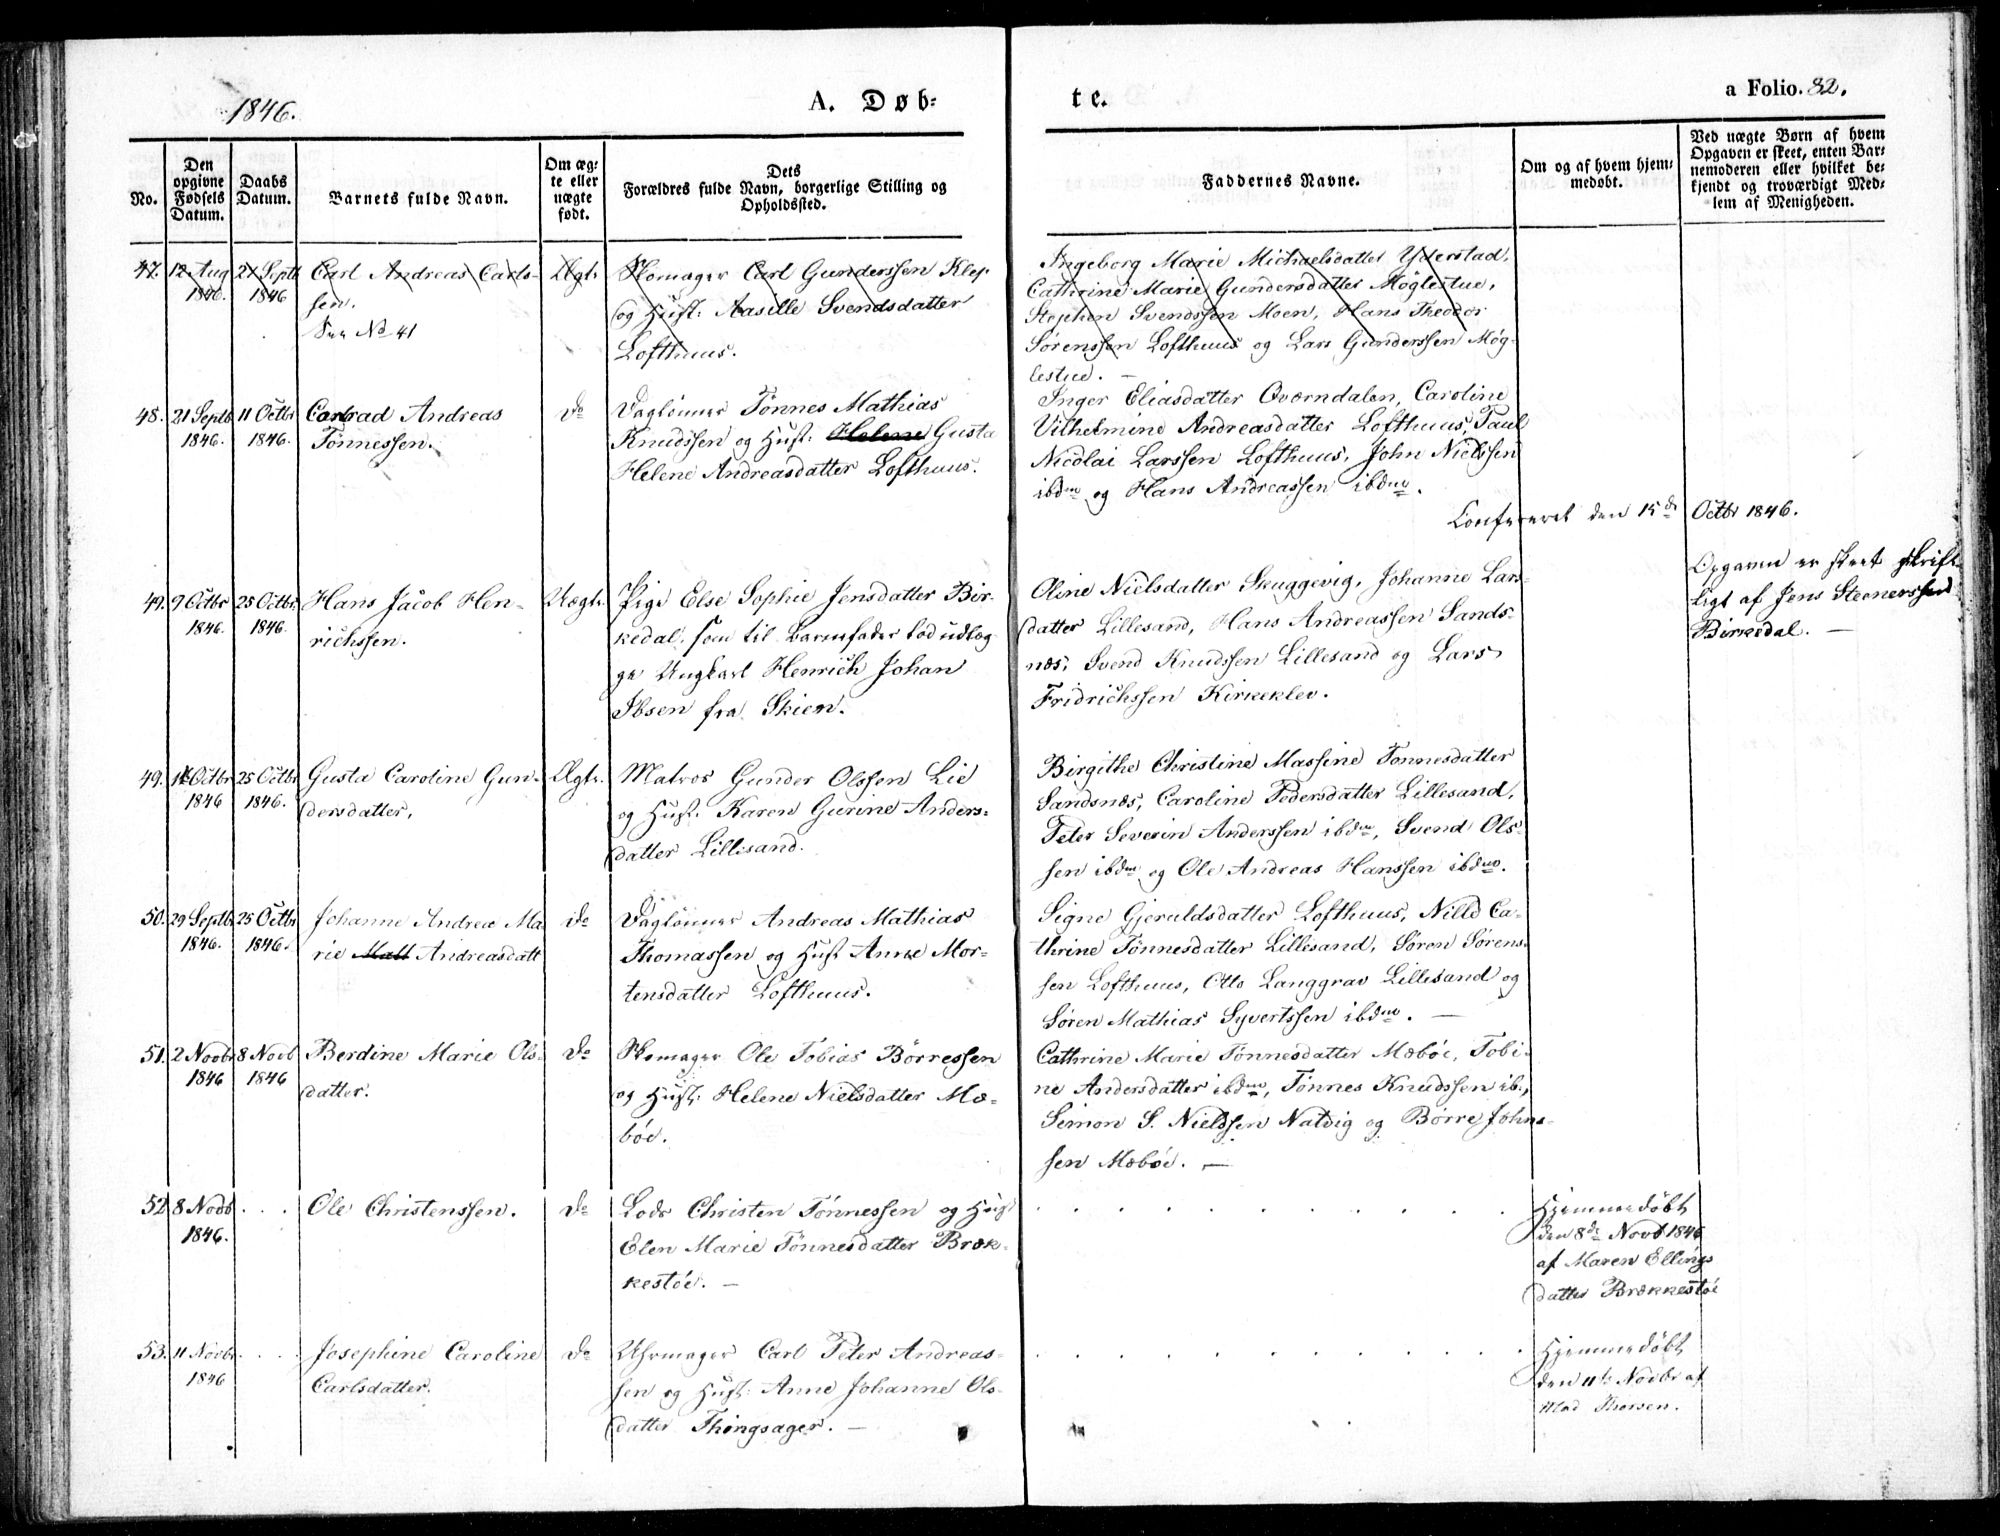 1846.
A. Døb-
te.
a Folio. 82.
No.
Den
opgivne
Fødsels
Datum.
Daabs
Datum.
Barnets fulde Navn.
Om æg-
te eller
uægte
født.
Dets
Forældres fulde Navn, borgerlige Stilling og
Opholdssted.
Faddernes Navne.
Om og af hvem hjem-
medøbt.
Ved uægte Børn af hvem
Opgaven er skeet, enten Bar-
nemoderen eller hvilket be-
kjendt og troværdigt Med-
lem af Menigheden.
47.
12 Aug
1846.
27 Septb
1846
Carl Andreas Carls-
sen.
See No 41
Ægte
Skomager Carl Gunderssen Klep
og Hust: Aasille Svendsdatter
Lofthuus.
Ingeborg Marie Michaelsdatter Ytterstad,
Cathrine Marie Gundersdatter Møglestue,
Stephen Svendssen Moen, Hans Theodor
Sørenssen Lofthuus og Lars Gunderssen Møg-
lestue. —
48.
21 Septb
1846.
11 Octbr
1846.
Conrad Andreas
Tønnessen.
do
Daglønner Tønnes Mathias
Knudssen og Hust: Helene Gusta
Helene Andreasdatter Lofthuus.
Inger Eliasdatter Qværndalen, Caroline
Vilhelmine Andreasdatter Lofthuus, Paul
Nicolai Larssen Lofthuus, John Nielssen
ibdm og Hans Andreassen ibdm.
Confereret den 15de Octbr 1846.
49.
9 Octbr
1846.
25 Octbr.
1846.
Hans Jacob Hen-
richssen.
Uægte
Pige Else Sophie Jensdatter Bir-
kedal, som til Barnefader lod udlæg-
ge Ungkarl Henrich Johan
Ibsen fra Skien.
Oline Nielsdatter Skuggevig, Johanne Lars-
datter Lillesand, Hans Andreassen Sands-
næs, Svend Knudssen Lillesand og Lars
Fridrichssen Kirkeklev.
Opgaven er skeet skrift-
ligt af Jens Steenerssen
Birkedal. —
49.
Octbr
1846
25 Octbr
1846.
Gusta Caroline Gun-
dersdatter.
Ægte
Matros Gunder Olssen Lie
og Hust. Karen Gurine Anders-
datter Lillesand.
Birgithe Christine Massine Tønnesdatter
Sandsnæs, Caroline Pedersdatter Lillesand,
Peter Severin Anderssen ibdm, Svend Ols-
sen ibdm og Ole Andreas Hanssen ibdm.
50.
29 Septb
1846.
25 Octbr
1846.
Johanne Andrea Ma-
rie Matt Andreasdatt
do
Daglønner Andreas Mathias
Thomassen og Hust Anne Mor-
tensdatter Lofthuus.
Signe Gjeruldsdatter Lofthuus, Nilld Ca-
thrine Tønnesdatter Lillesand, Søren Sørens-
sen Lofthuus, Otto Langgrav Lillesand og
Søren Mathias Syvertssen ibdm. —
51.
2 Novbr
1846
8 Novb
1846
Berdine Marie Ols-
datter.
do
Skomager Ole Tobias Børressen
og Hust: Helene Nielsdatter Mæ-
bøe.
Cathrine Marie Tønnesdatter Mæbøe, Tobi-
ne Andersdatter ibdm, Tønnes Knudssen ib.,
Simon S. Nielssen Natvig og Børre Johns-
sen Mæbøe. —
52
8 Novb
1846.
Ole Christenssen.
do
Lods Christen Tønnessen og Hust
Elen Marie Tønnesdatter Bræk-
kestøe. —
Hjemmedøbt
den 8de Novb 1846
af Maren Ellings
datter Brækkestøe
53.
11 Novbr
1846
Josephine Caroline
Carlsdatter.
do
Uhrmager Carl Peter Andreas-
sen og Hust: Anne Johanne Ols-
datter Thingsager. —
Hjemmedøbt
den 11te Novbr af
Mad Thorsen.